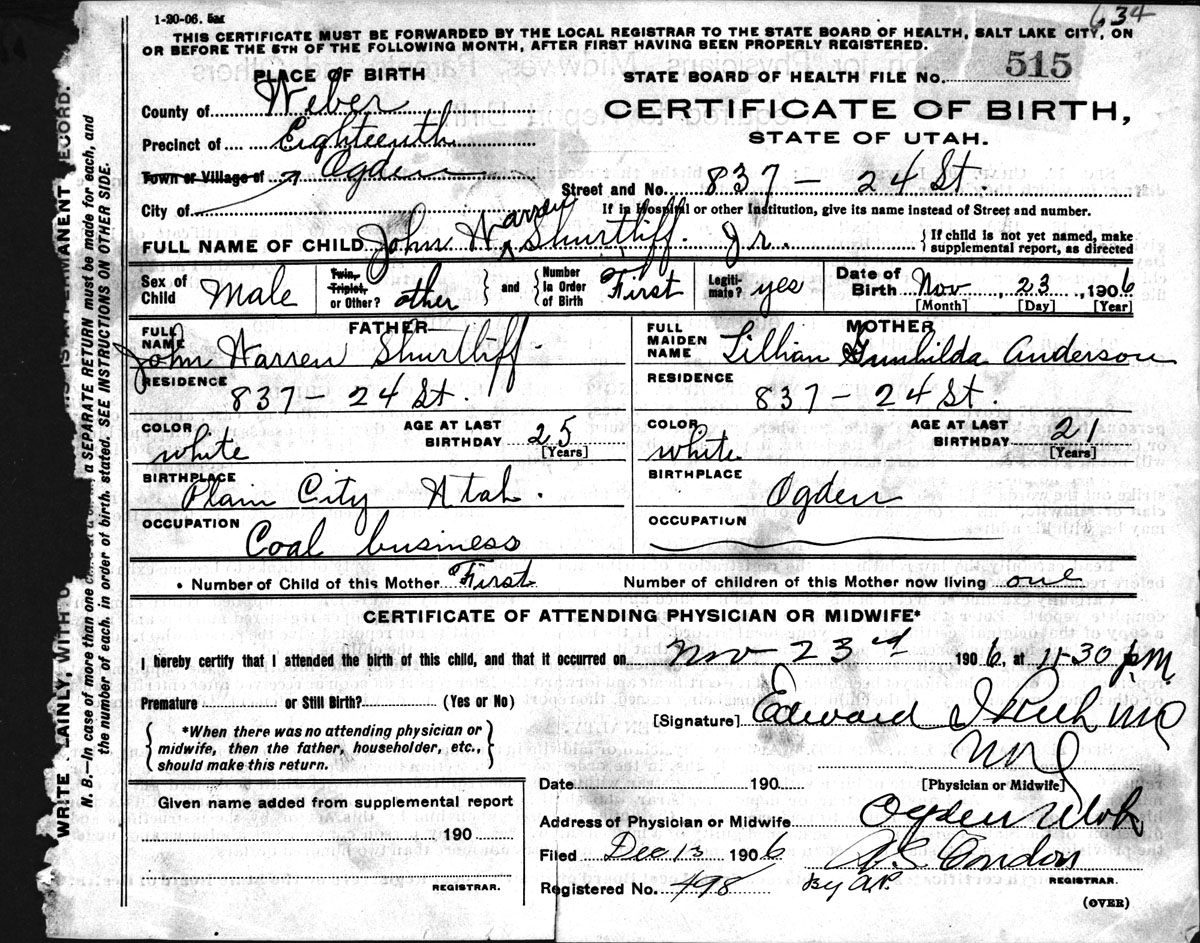 634
1-20-06. 5M
THIS CERTIFICATE MUST BE FORWARDED BY THE LOCAL REGISTRAR TO THE STATE BOARD OF HEALTH, SALT LAKE CITY, ON
OR BEFORE THE 5TH OF THE FOLLOWING MONTH, AFTER FIRST HAVING BEEN PROPERLY REGISTERED.
PLACE OF BIRTH
STATE BOARD OF HEALTH FILE No. 515
County of Weber
CERTIFICATE OF BIRTH,
Precinct of Eighteenth
STATE OF UTAH.
Town or Village of Ogden
Street and No. 837 - 24 St.
City of
If in Hospital or other Institution, give its name instead of Street and number.
FULL NAME OF CHILD John Warren Shurtliff Jr. {If child is not yet named, make supplemental report, as directed
Sex of Child Male
Twin, Triplet, or Other? other } and { Number in Order of Birth First
Legitimate? yes
Date of Birth Nov 23, 1906
[Month] [Day] [Year]
FATHER
FULL NAME John Warren Shurtliff
RESIDENCE 837 - 24 St.
COLOR white
AGE AT LAST BIRTHDAY 25
[Years]
BIRTHPLACE Plain City Utah.
OCCUPATION Coal business
MOTHER
FULL MAIDEN NAME Lillian Gunhilda Anderson
RESIDENCE 837 - 24 St.
COLOR white
AGE AT LAST BIRTHDAY 21
[Years]
BIRTHPLACE Ogden
OCCUPATION
Number of Child of this Mother First
Number of children of this Mother now living one
CERTIFICATE OF ATTENDING PHYSICIAN OR MIDWIFE*
I hereby certify that I attended the birth of this child, and that it occurred on Nov 23rd 1906, at 11-30 p.m.
Premature or Still Birth? (Yes or No)
[Signature] Edward I Rich MD
{*When there was no attending physician or
midwife, then the father, householder, etc.,
should make this return.}
[Physician or Midwife]
Date 190
Given name added from supplemental report
190
REGISTRAR.
Address of Physician or Midwife Ogden Utah
Filed Dec 13 1906
A.S. Condon
Registered No. 498
By A.P.
REGISTRAR.
(OVER)
RECORD.
N. B.—In case of more than one
a SEPARATE RETURN must be made for each, and
the number of each, in order of birth, stated. SEE INSTRUCTIONS ON OTHER SIDE.